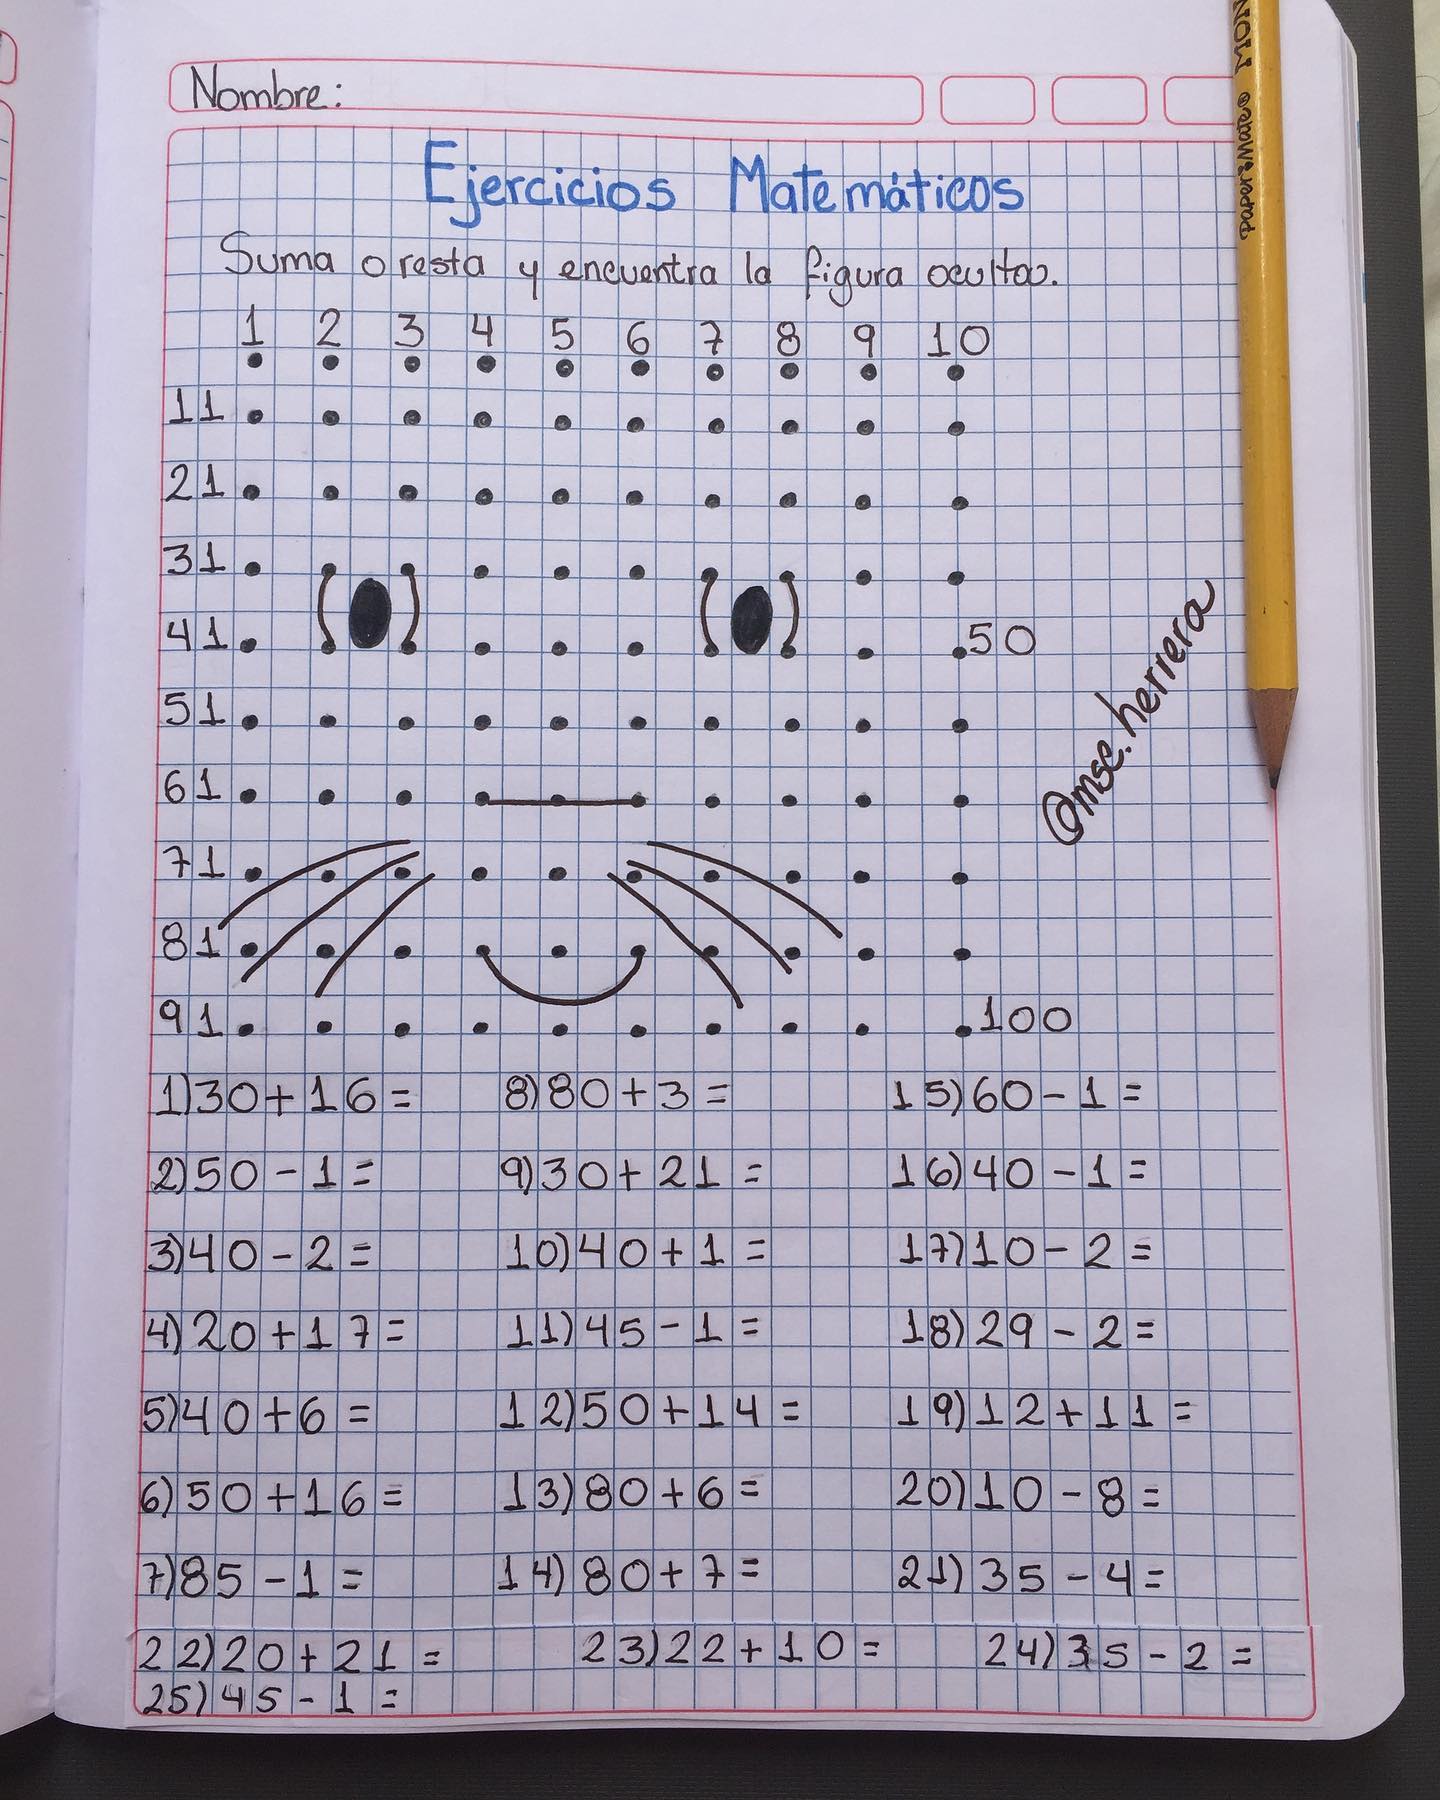 Nombre:
Ejercicios Matemáticos
Suma o resta y encuentra la figura oculta.
1 2 3 4 5 6 7 8 9 10
11
21
31
41 50
51
61
71
81
91 100
1)30+16= 8)80+3= 15)60-1=
2)50-1= 9)30+21= 16)40-1=
3)40-2= 10)40+1= 17)10-2=
4)20+17= 11)45-1= 18)29-2=
5)40+6= 12)50+14= 19)12+11=
6)50+16= 13)80+6= 20)10-8=
7)85-1= 14)80+7= 21)35-4=
22)20+21= 23)22+10= 24)35-2=
25)45-1=
@mse.herrera